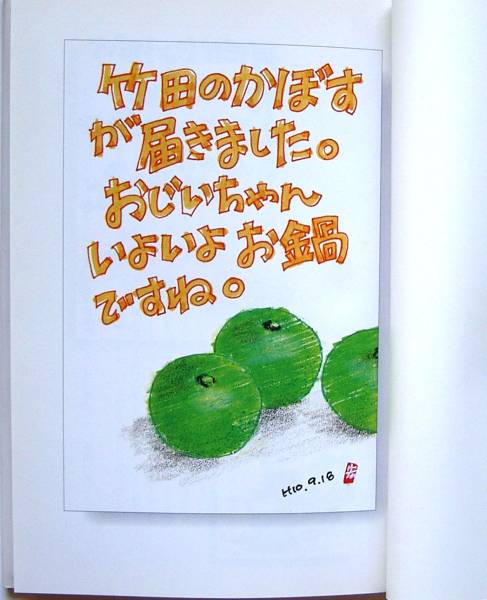 竹田のかぼす
が届きました。
おじいちゃん
いよいよお鍋
ですね。
H10.9.18